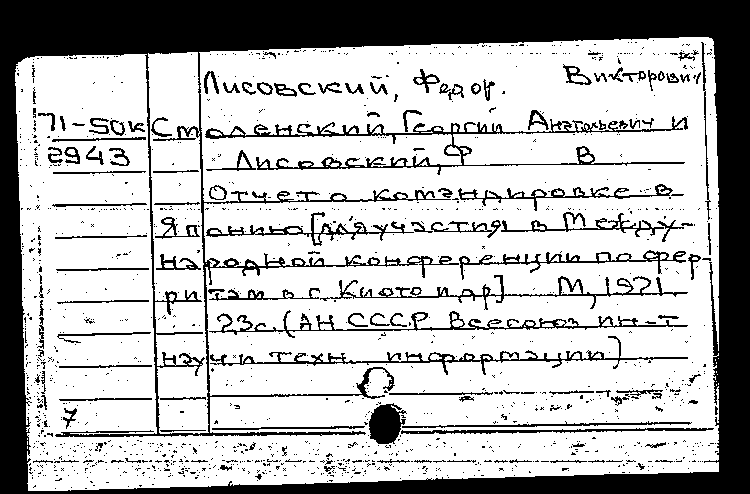 Лисовский, Федор. Викторович
71-50к Смоленский, Георгий Анатольевич и
2943 Лисовский, Ф В
Отчет о командировке в
Японию [для участия в Между-
народной конференции по фер-
ритам в г. Киото и др] М, 1971
23с. (АН СССР Всесоюз. ин-т
науч и техн. информации)
7